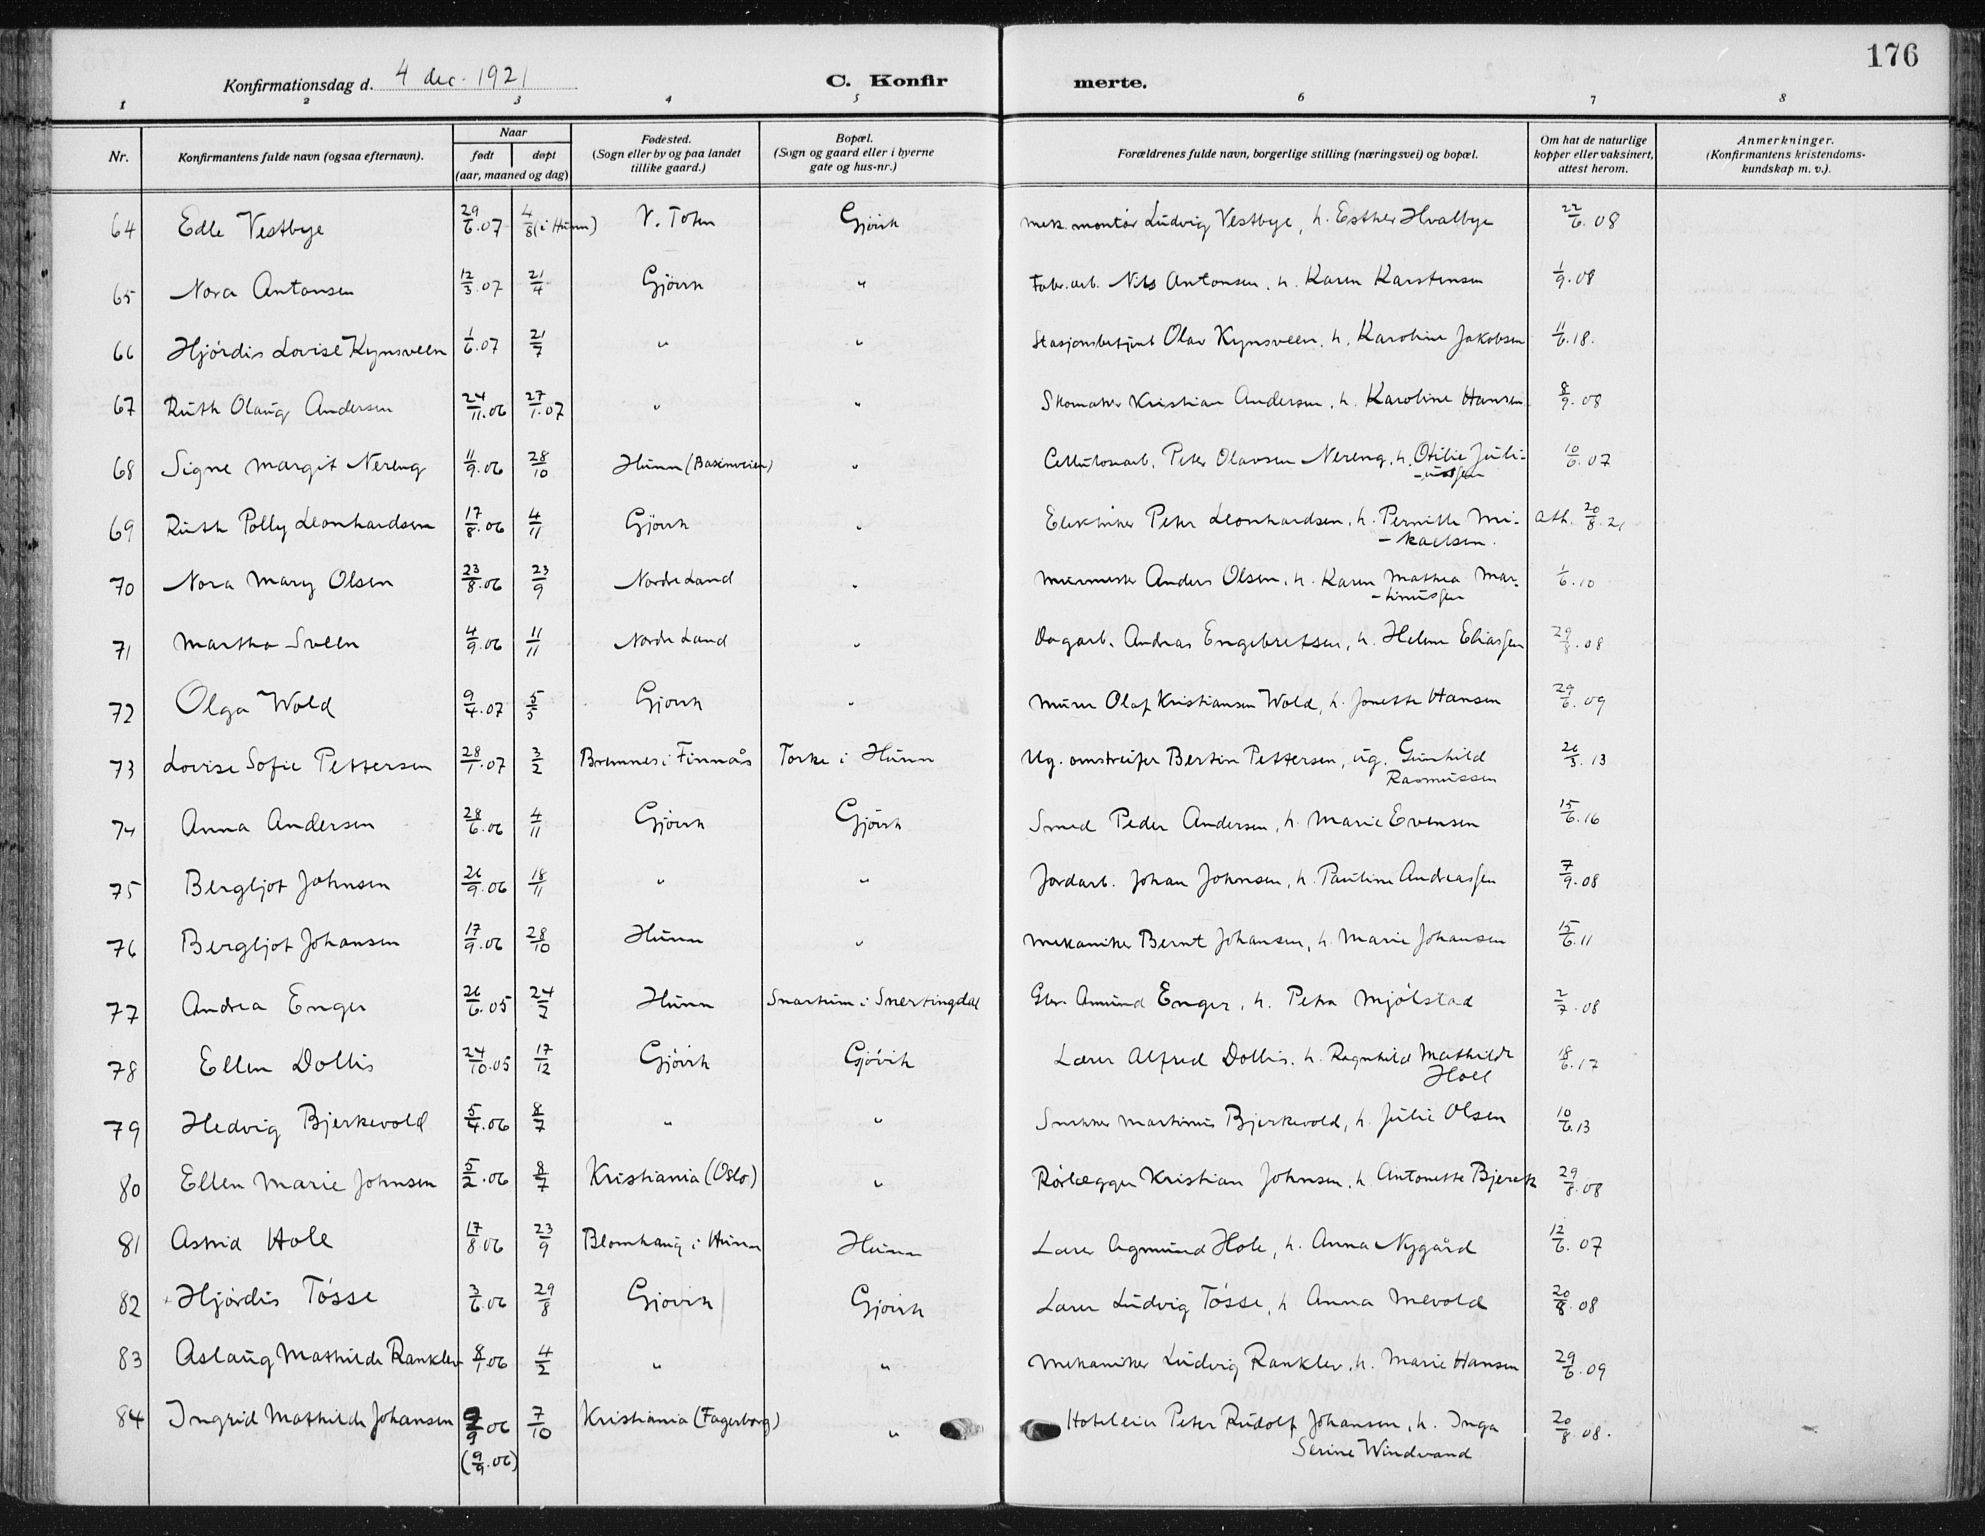 176
Konfirmationsdag d. 4 dec. 1921 C. Konfir merte.
1 2 3 4 5 6 7 8
Nr. Konfirmantens fulde navn (ogsaa efternavn). Naar født døpt (aar, maaned og dag) Fødested. (Sogn eller by og paa landet tillike gaard.) Bopæl. (Sogn og gaard eller i byerne gate og hus-nr.) Forældrenes fulde navn, borgerlige stilling (næringsvei) og bopæl. Om hat de naturlige kopper eller vaksinert, attest herom. Anmerkninger. (Konfirmantens kristendomskundskap m. v.).
64 Edle Vestbye 29/6.07 4/8 (i Hunn) V. Toten Gjövik mek. montör Ludvig Vestbye, h. Esther Hvalbye 22/6.08
65 Nora Antonsen 12/3.07 21/4 Gjövik " Fabr.arb. Nils Antonsen, h. Karen Karstensen 1/9.08
66 Hjördis Lovise Kynsveen 1/6.07 21/7 " " Stasjonsbetjent Olav Kynsveen, h. Karoline Jakobsen 11/6.18.
67 Ruth Olaug Andersen 24/11.06 27/1.07 " " Skomaker Kristian Andersen, h. Karoline Hansen 8/9.08
68 Signe Margit Nereng 11/9.06 28/10 Hunn (Basenveien) " Cellulosearb. Peter Olavsen Nereng, h. Otilie Juli-
-ussen 10/6.07
69 Ruth Polly Leonhardsen 17/8.06 4/11 Gjövik " Elektriker Peter Leonhardsen, h. Pernille Mi-
-kaelsen. Att. 20/8.21
70 Nora Mary Olsen 23/8.06 23/9 Nordre Land " Murmester Anders Olsen, h. Karen Mathea Mar-
-tinussen 1/6.10
71 Martha Sveen 4/9.06 11/11 Nordre Land " Dagarb. Andreas Engebretsen, h. Helene Eliassen 29/8.08
72 Olga Wold 9/4.07 5/5 Gjövik " Murer Olaf Kristiansen Wold, h. Jonette Hansen 29/6.09
73 Lovise Sofie Pettersen 28/1.07 3/2 Bremnes i Finnås Torke i Hunn Ug. omstreifer Bertin Pettersen, ug. Gunhild
Rasmussen 26/3.13
74 Anna Andersen 28/6.06 4/11 Gjövik Gjövik Smed Peder Andersen, h. Marie Evensen 15/6.16
75 Bergljot Johnsen 26/9.06 18/11 " " Jordarb. Johan Johnsen, h. Pauline Andreassen 7/9.08
76 Bergljot Johansen 17/9.06 28/10 Hunn " Mekaniker Bernt Johansen, h. Marie Johansen 15/6.11
77 Andrea Enger 26/6.05 24/7 Hunn Snartum i Snertingdal Gbr. Amund Enger, h. Petra Mjölstad 2/7.08
78 Ellen Dollis 24/10.05 17/12 Gjövik Gjövik Lærer Alfred Dollis, h. Ragnhild Mathilde
Holl 18/6.17
79 Hedvig Bjerkevold 5/4.06 8/7 " " Snekker Martinus Bjerkevold, h. Julie Olsen 10/6.13
80 Ellen Marie Johnsen 5/2.06 8/7 Kristiania (Oslo) " Rörlægger Kristian Johnsen, h. Antonette Bjerck 29/8.08
81 Astrid Hole 17/8 06 23/9 Blomhaug i Hunn Hunn Lærer Agmund Hole, h. Anna Nygård 12/6.07
82 Hjördis Tösse 3/6.06 29/8 Gjövik Gjövik Lærer Ludvig Tösse, h Anna Mevold 20/8.08
83 Aslaug Mathilde Ranklev 8/1 06 4/2 " " Mekaniker Ludvig Ranklev, h. Marie Hansen 29/6.09
84 Ingrid Mathilde Johansen 9/9 06 7/10 Kristiania (Fagerborg) " Hoteleier Peter Rudolf Johansen, h. Inga 20/8.08.
(9/9.06) Serine Windvand